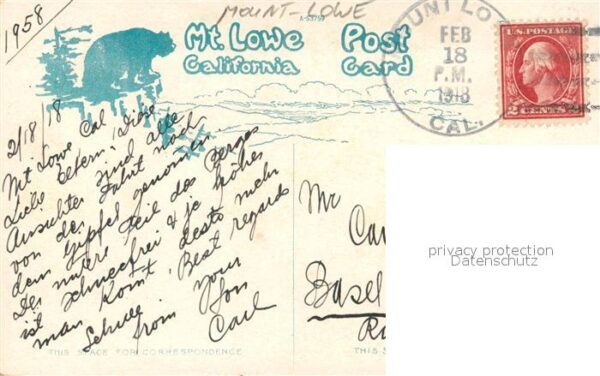 1958
MOUNT-LOWE
A-53759
Mt. Lowe Post
California Card
MT. LOWE
FEB
18
P.M.
1918
CAL.
U.S. POSTAGE
2 CENTS 2
2/18/18
Mt Lowe Cal
Liebe Eltern! Diese
Ansichten sind alle
von der Fahrt nach
dem Gipfel genommen
Der untere Teil des Berges
ist schneefrei & je höher
man komt, desto mehr
Schnee. Best regards
from your
son
Carl
Mr
Basel
privacy protection
Datenschutz
THIS SPACE FOR CORRESPONDENCE
THIS S